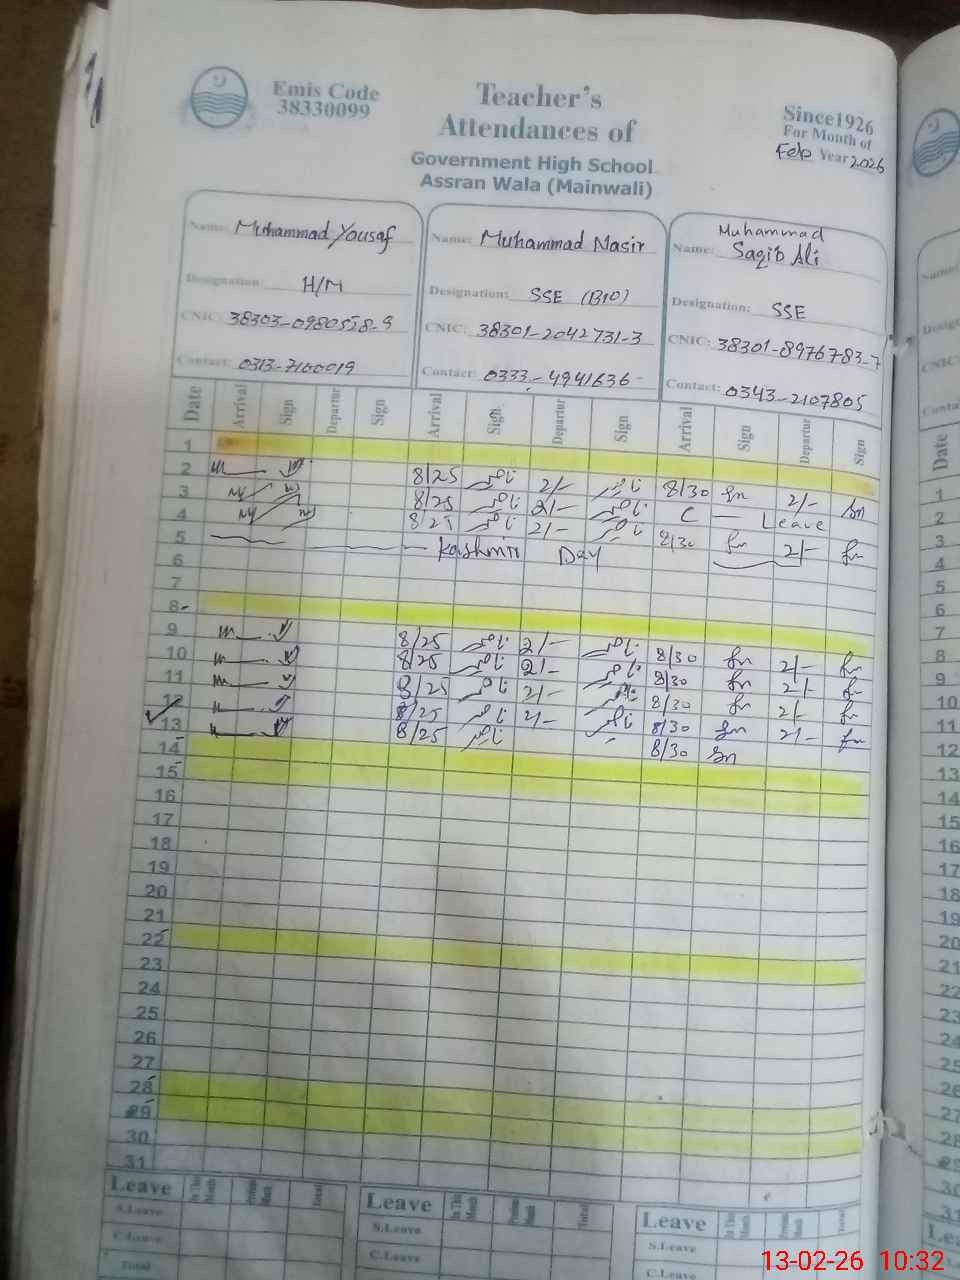 Emis Code
38330099
Teacher's
Attendances of
Government High School
Assran Wala (Mainwali)
Since1926
For Month of
Feb Year 2026
Name: Muhammad Yousaf
Designation H/M
CNIC: 38303-0980558-9
Contact: 0313-7100019
Name: Muhammad Nasir
Designation: SSE (BIO)
CNIC: 38301-2042731-3
Contact: 0333-4941636
Muhammad
Name: Saqib Ali
Designation: SSE
CNIC: 38301-8976783-7
Contact: 0343-2107805
Date Arrival Sign Departur Sign Arrival Sign Departur Sign Arrival Sign Departur Sign
1
2 8/25 2/- 8/30 2/-
3 8/25 2/- C — Leave
4 8/25 2/- 8/30 2/-
5 Kashmir Day
6
7
8
9 8/25 2/- 8/30 2/-
10 8/25 2/- 8/30 2/-
11 8/25 2/- 8/30 2/-
12 8/25 2/- 8/30 2/-
13 8/25 8/30
14
15
16
17
18
19
20
21
22
23
24
25
26
27
28
29
30
31
Leave In This Month Total
S.Leave
C.Leave
Total
Leave In This Month Total
S.Leave
C.Leave
Leave In This Month Total
S.Leave
C.Leave
Date
1
2
3
4
5
6
7
8
9
10
11
12
13
14
15
16
17
18
19
20
21
22
23
24
25
26
27
28
29
30
31
13-02-26 10:32